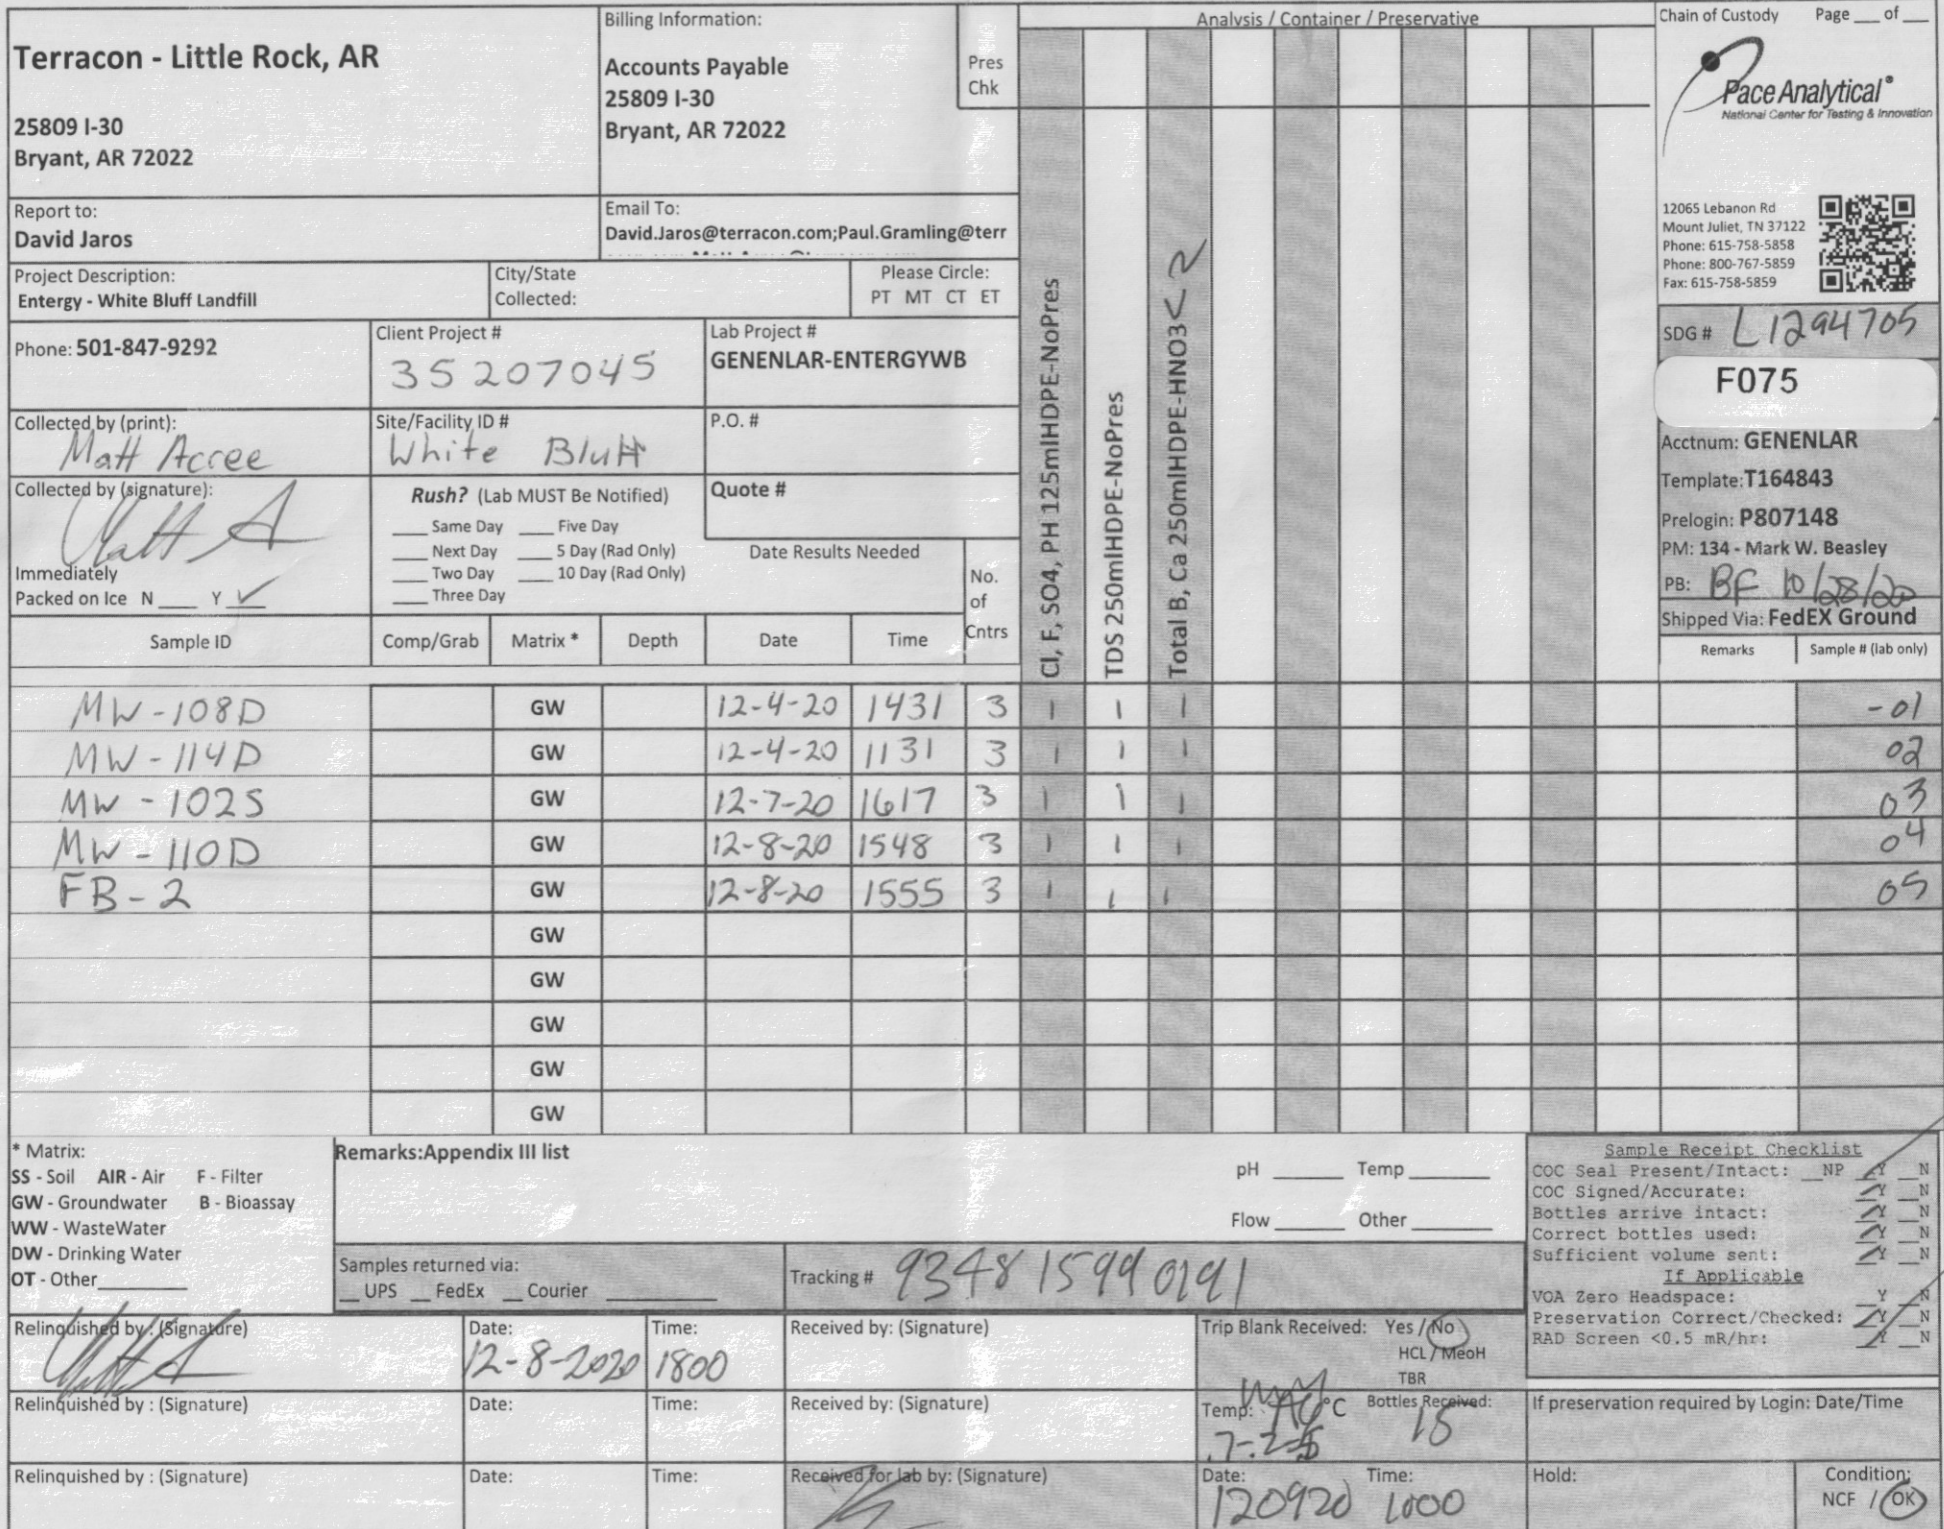 Terracon - Little Rock, AR
25809 I-30
Bryant, AR 72022
Billing Information:
Accounts Payable
25809 I-30
Bryant, AR 72022
Pres
Chk
Analysis / Container / Preservative
Chain of Custody Page ___ of ___
Pace Analytical®
National Center for Testing & Innovation
12065 Lebanon Rd
Mount Juliet, TN 37122
Phone: 615-758-5858
Phone: 800-767-5859
Fax: 615-758-5859
Report to:
David Jaros
Email To:
David.Jaros@terracon.com;Paul.Gramling@terr
Project Description:
Entergy - White Bluff Landfill
City/State
Collected:
Please Circle:
PT MT CT ET
Phone: 501-847-9292
Client Project #
35207045
Lab Project #
GENENLAR-ENTERGYWB
Collected by (print):
Matt Acree
Site/Facility ID #
White Bluff
P.O. #
Collected by (signature):
Matt A
Immediately
Packed on Ice N ___ Y ✓
Rush? (Lab MUST Be Notified)
___ Same Day ___ Five Day
___ Next Day ___ 5 Day (Rad Only)
___ Two Day ___ 10 Day (Rad Only)
___ Three Day
Quote #
Date Results Needed
No.
of
Cntrs
Cl, F, SO4, PH 125mlHDPE-NoPres
TDS 250mlHDPE-NoPres
Total B, Ca 250mlHDPE-HNO3 < 2
SDG # L1294705
F075
Acctnum: GENENLAR
Template:T164843
Prelogin: P807148
PM: 134 - Mark W. Beasley
PB: BF 10/28/20
Shipped Via: FedEX Ground
Remarks Sample # (lab only)
Sample ID Comp/Grab Matrix * Depth Date Time
MW-108D GW 12-4-20 1431 3 1 1 1 -01
MW-114D GW 12-4-20 1131 3 1 1 1 02
MW-102S GW 12-7-20 1617 3 1 1 1 03
MW-110D GW 12-8-20 1548 3 1 1 1 04
FB-2 GW 12-8-20 1555 3 1 1 1 05
GW
GW
GW
GW
GW
* Matrix:
SS - Soil AIR - Air F - Filter
GW - Groundwater B - Bioassay
WW - WasteWater
DW - Drinking Water
OT - Other
Remarks:Appendix III list
pH ___ Temp ___
Flow ___ Other ___
Samples returned via:
__ UPS __ FedEx __ Courier
Tracking # 9348 1599 0191
Sample Receipt Checklist
COC Seal Present/Intact: __NP ✓Y __N
COC Signed/Accurate: ✓Y __N
Bottles arrive intact: ✓Y __N
Correct bottles used: ✓Y __N
Sufficient volume sent: ✓Y __N
If Applicable
VOA Zero Headspace: __Y __N
Preservation Correct/Checked: ✓Y __N
RAD Screen <0.5 mR/hr: ✓Y __N
Relinquished by : (Signature)
Date:
12-8-2020
Time:
1800
Received by: (Signature)
Trip Blank Received: Yes / No
HCL / MeoH
TBR
Relinquished by : (Signature)
Date:
Time:
Received by: (Signature)
Temp: °C
Bottles Received:
15
If preservation required by Login: Date/Time
Relinquished by : (Signature)
Date:
Time:
Received for lab by: (Signature)
Date:
120920
Time:
1000
Hold:
Condition:
NCF / OK